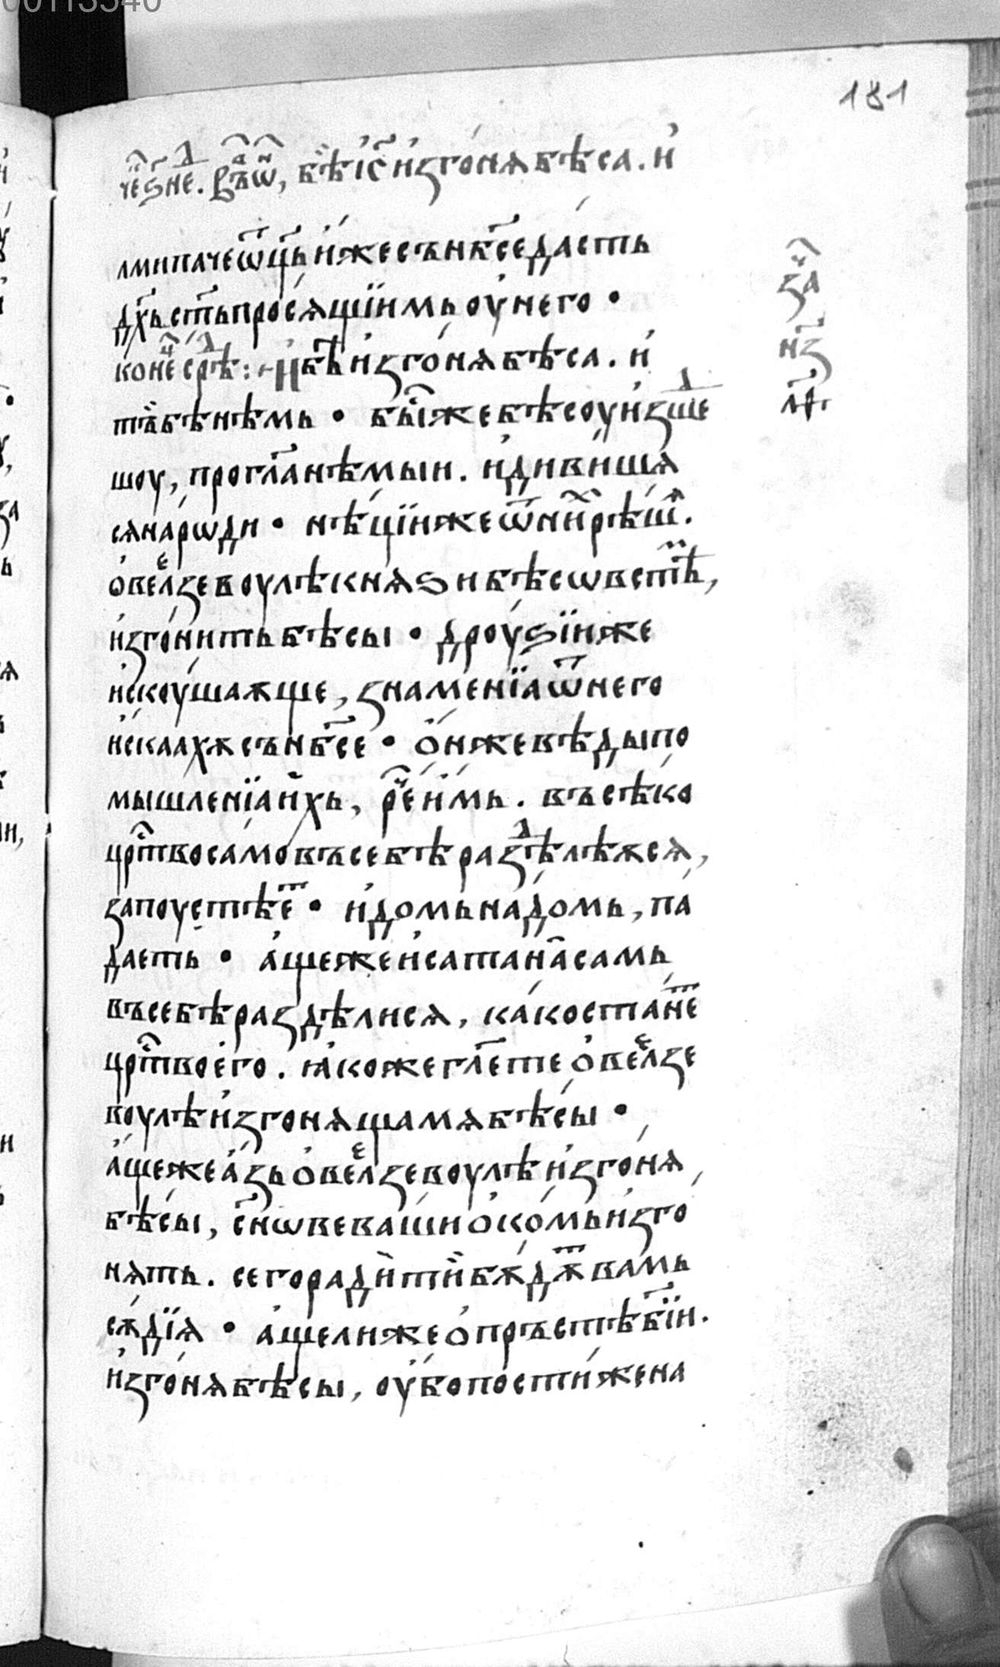 00113540
181
че҃т ѕ҃ не҃д. въ ѡ҃н, бѣ і҃с изгонѧ бѣса. и
лми паче ѿц҃ь иже съ нб҃се дасть
дх҃ь ст҃ь просѧщїимь оу него •
коне҃ц срѣ҃д : и бѣ изгонѧ бѣса. и
тъ бѣ нѣмь • бы҃ же бѣсоу изше҃д
шоу, прогл҃а нѣмыи. и дивишѧ
сѧ нарѡди • нѣцїи же ѿ ни҃х рѣшѧ.
о велзевоулѣ кнѧѕи бѣсѡвьстѣ҃м,
изгонить бѣсы • дроуѕїи же
искоушаѫще, знаменїа ѿ него
искаахѫ съ нб҃се • он же вѣды по
мышленїа ихь, ре҃ч имь. въсѣко
цр҃тво само въ себѣ раз҃дѣлѣѫсѧ,
запоустѣе҃т • и домь на домь, па
даеть • аще же и сатана самь
въ себѣ раздѣлисѧ, како стане҃т
цр҃тво его. ꙗкоже гл҃ете о велзе
воулѣ изгонѧща мѧ бѣсы •
аще же азь о велзевоулѣ изгонѧ
бѣсы, сн҃ѡве ваши о комь изго
нѧть. сего ради ти бѫдѫ҃т вамь
сѫдїѧ • аще ли же о пръстѣ бж҃їи.
изгонѧ бѣсы, оубо постиже на
за҃ч
н҃з
л҃к